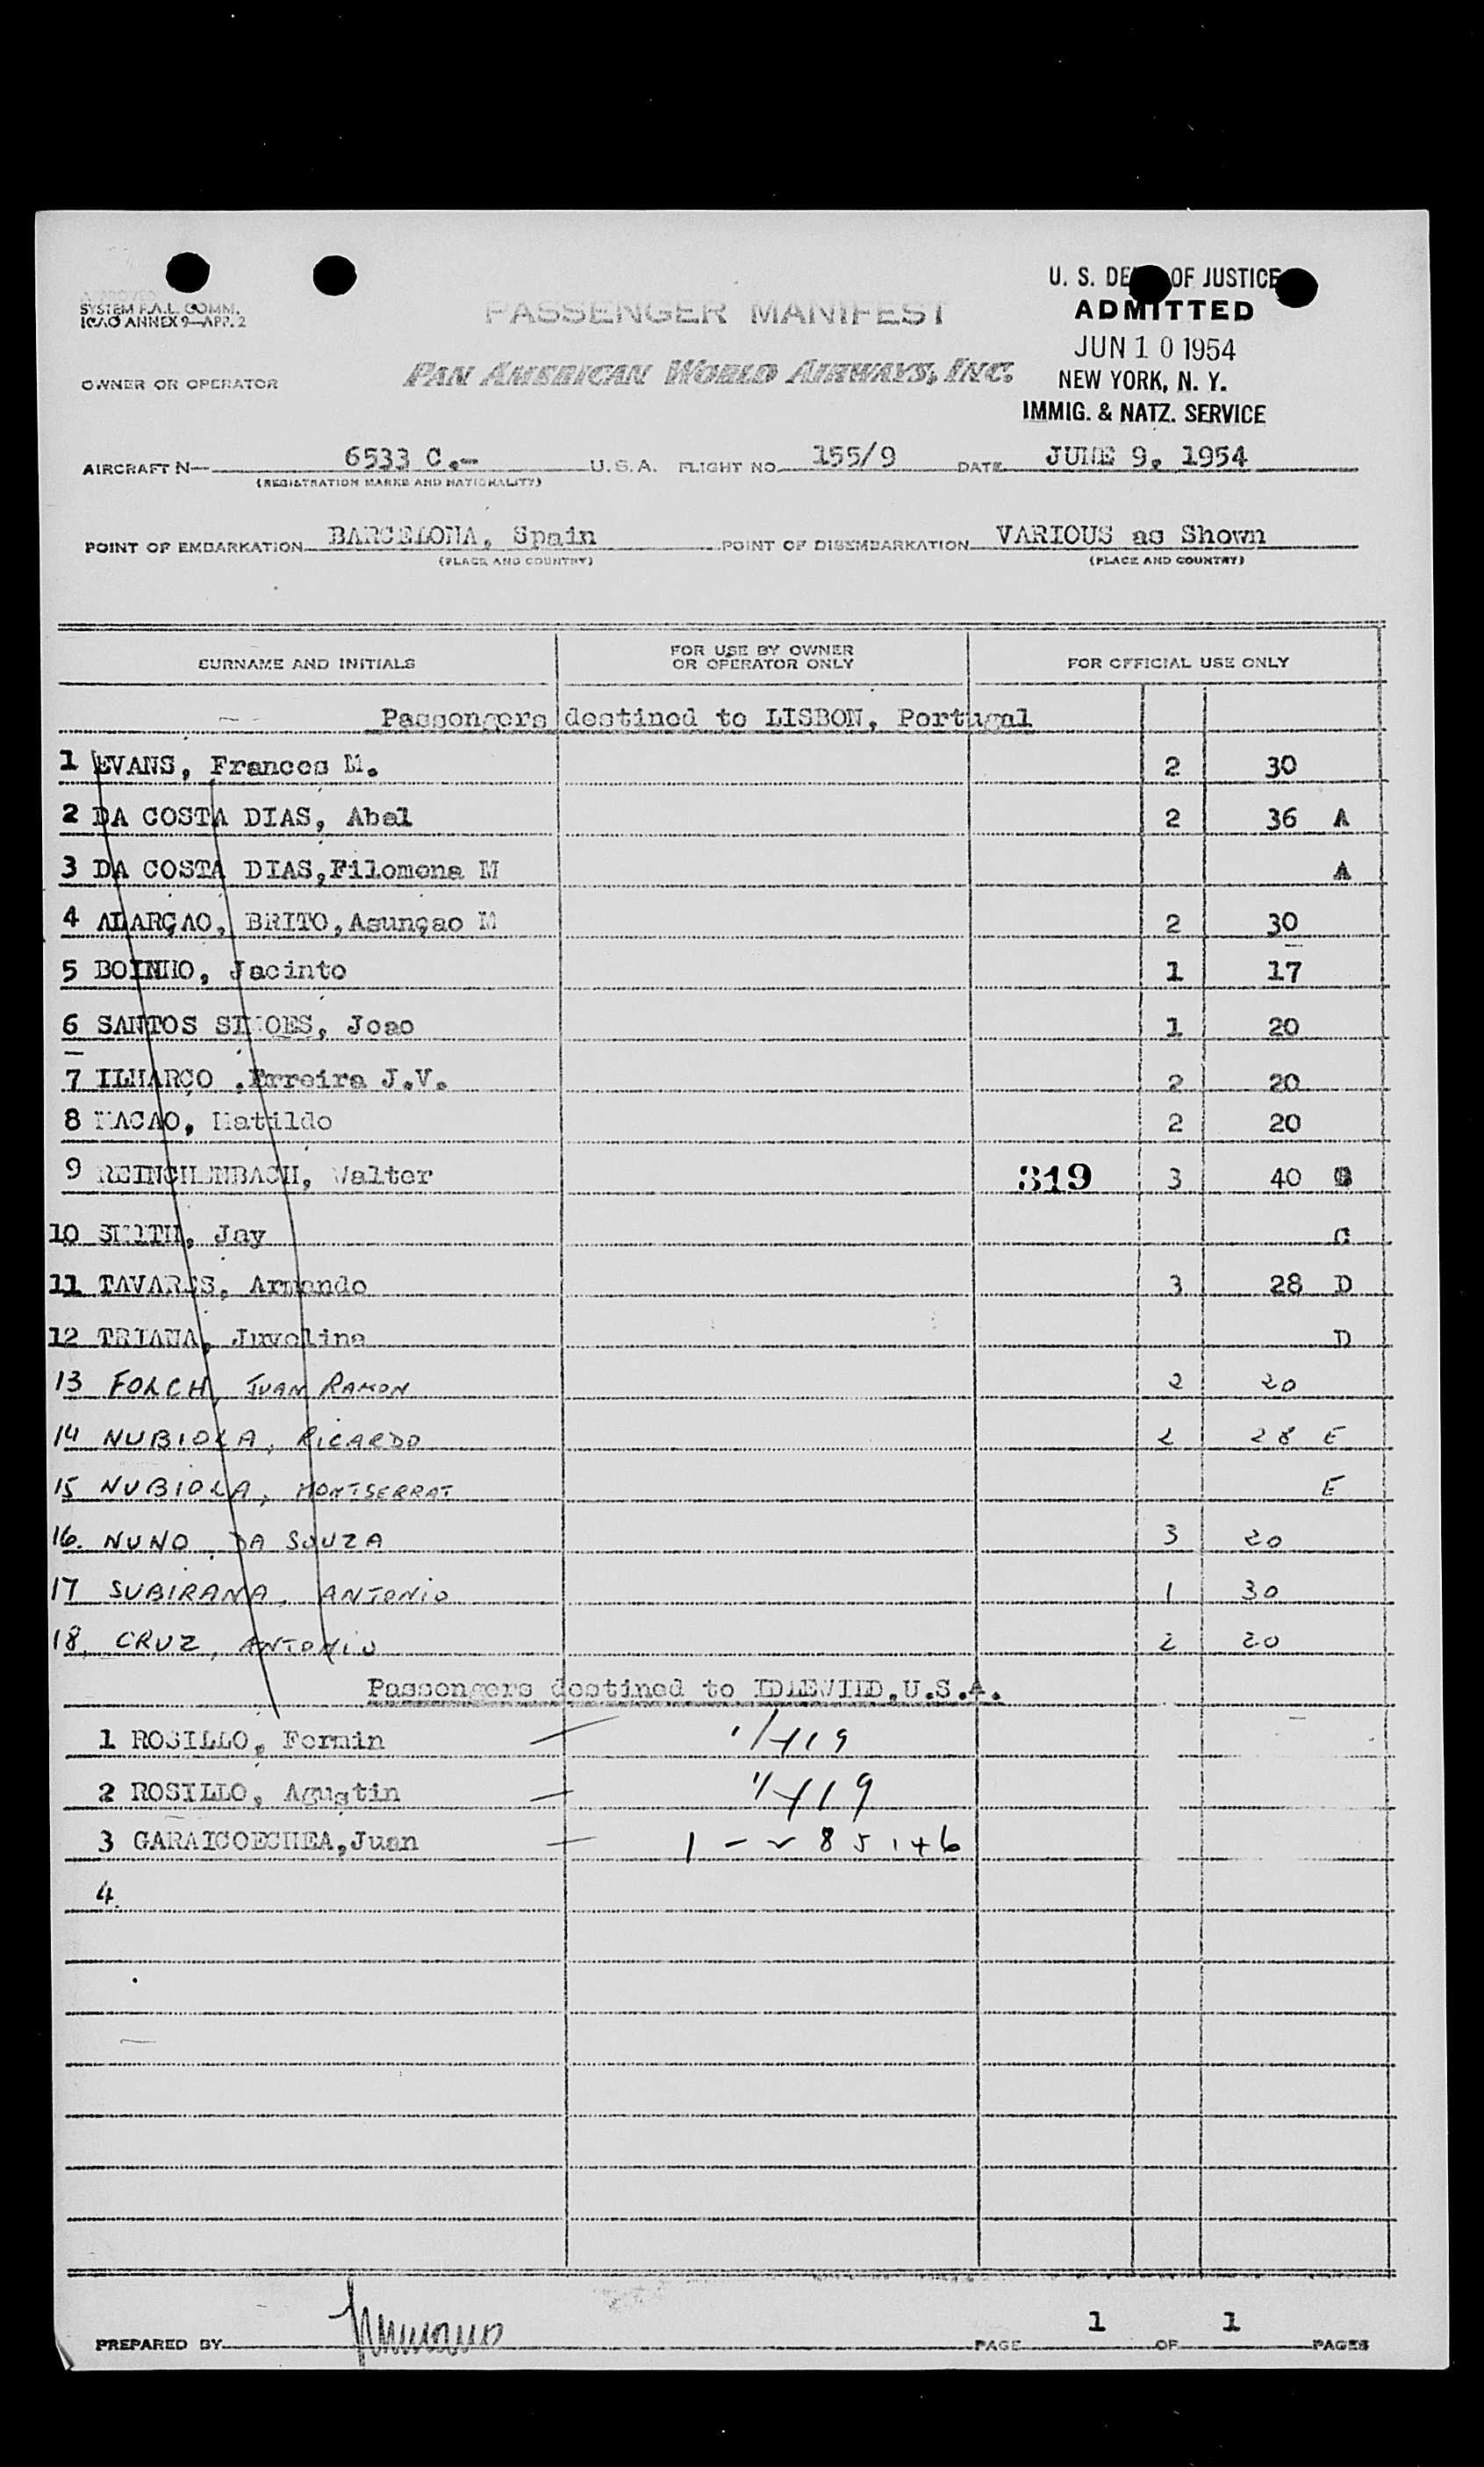 SYSTEM F.A.L. COMM.
ICAO ANNEX 9—APP. 2
PASSENGER MANIFEST
U. S. DE OF JUSTICE
ADMITTED
JUN 10 1954
NEW YORK, N. Y.
IMMIG. & NATZ. SERVICE
OWNER OR OPERATOR PAN AMERICAN WORLD AIRWAYS, INC.
AIRCRAFT N— 6533 C.- U.S.A. FLIGHT NO. 155/9 DATE JUNE 9, 1954
(REGISTRATION MARKS AND NATIONALITY)
POINT OF EMBARKATION BARCELONA, Spain POINT OF DISEMBARKATION VARIOUS as Shown
(PLACE AND COUNTRY) (PLACE AND COUNTRY)
SURNAME AND INITIALS FOR USE BY OWNER OR OPERATOR ONLY FOR OFFICIAL USE ONLY
Passengers destined to LISBON, Portugal
1 EVANS, Frances M. 2 30
2 DA COSTA DIAS, Abel 2 36 A
3 DA COSTA DIAS,Filomena M A
4 ALARÇAO, BRITO,Asunçao M 2 30
5 BOINHO, Jacinto 1 17
6 SANTOS SIMOES, Joao 1 20
7 ILHARCO .Erreira J.V. 2 20
8 MACAO, Matilde 2 20
9 REINCHENBACH, Walter 319 3 40 B
10 SMITH, Jay C
11 TAVARES, Armando 3 28 D
12 TRIANA, Juvelina D
13 FOLCH, JUAN RAMON 2 20
14 NUBIOLA, RICARDO 2 28 E
15 NUBIOLA, MONTSERRAT E
16. NUNO, DA SOUZA 3 20
17 SUBIRANA, ANTONIO 1 30
18. CRUZ, ANTONIO 2 20
Passengers destined to IDLEWILD,U.S.A.
1 ROSILLO, Fermin
2 ROSILLO, Agustin
3 GARAICOECHEA,Juan
4.
PREPARED BY PAGE 1 OF 1 PAGES